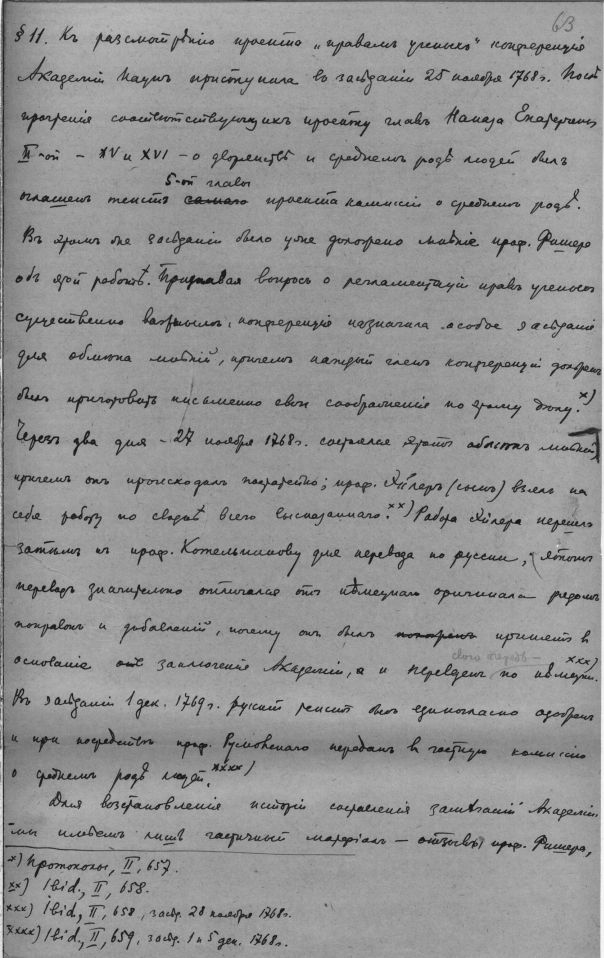 63
§ 11. Къ разсмотрѣнiю проекта „правамъ ученыхъ“ конференцiя
Академiи Наукъ приступила въ засѣданiи 25 ноября 1768 г. Послѣ
прочтенiя соотвѣтствующихъ проекту главъ Наказа Екатерины
II-ой – XV и XVI – о дворянствѣ и среднемъ родѣ людей былъ
5-ой главы
оглашенъ текстъ самаго проекта комиссiи о среднемъ родѣ.
Въ этомъ же засѣданiи было уже доложено мнѣнiе проф. Фишера
объ этой работѣ. Признавая вопросъ о регламентацiи правъ ученыхъ
существенно важнымъ, конференцiя назначила особое засѣданiе
для обмѣна мнѣнiй, причемъ каждый членъ конференцiи долженъ
былъ приготовить письменно свои соображенiя по этому дѣлу. x)
Черезъ два дня – 27 ноября 1768 г. состоялся этотъ обмѣнъ мнѣнiй,
причемъ онъ происходилъ постатейно; проф. Эйлеръ (сынъ) взялъ на
себя работу по сводкѣ всего высказаннаго. xx) Работа Эйлера перешла
затѣмъ къ проф. Котельникову для перевода по русски; этотъ
переводъ значительно отличался отъ нѣмецкаго оригинала рядомъ
поправокъ и добавленiй, почему онъ былъ принятъ въ
свою очередь –
основанiе заключенiя Академiи, а и переведенъ по нѣмецки. xxx)
Въ засѣданiи 1 дек. 1769 г. русскiй текстъ былъ единогласно одобренъ
и при посредствѣ проф. Румовскаго переданъ въ частную комиссiю
о среднемъ родѣ людей. xxxx)
Для возстановленiя исторiи составленiя замѣчанiй Академiи
мы имѣемъ лишь частичный матерiалъ – отзывы проф. Фишера,
x) Протоколы, II, 657.
xx) Ibid., II, 658.
xxx) Ibid., II, 658, засѣд. 28 ноября 1768 г.
xxxx) Ibid., II, 659, засѣд. 1 и 5 дек. 1768 г.